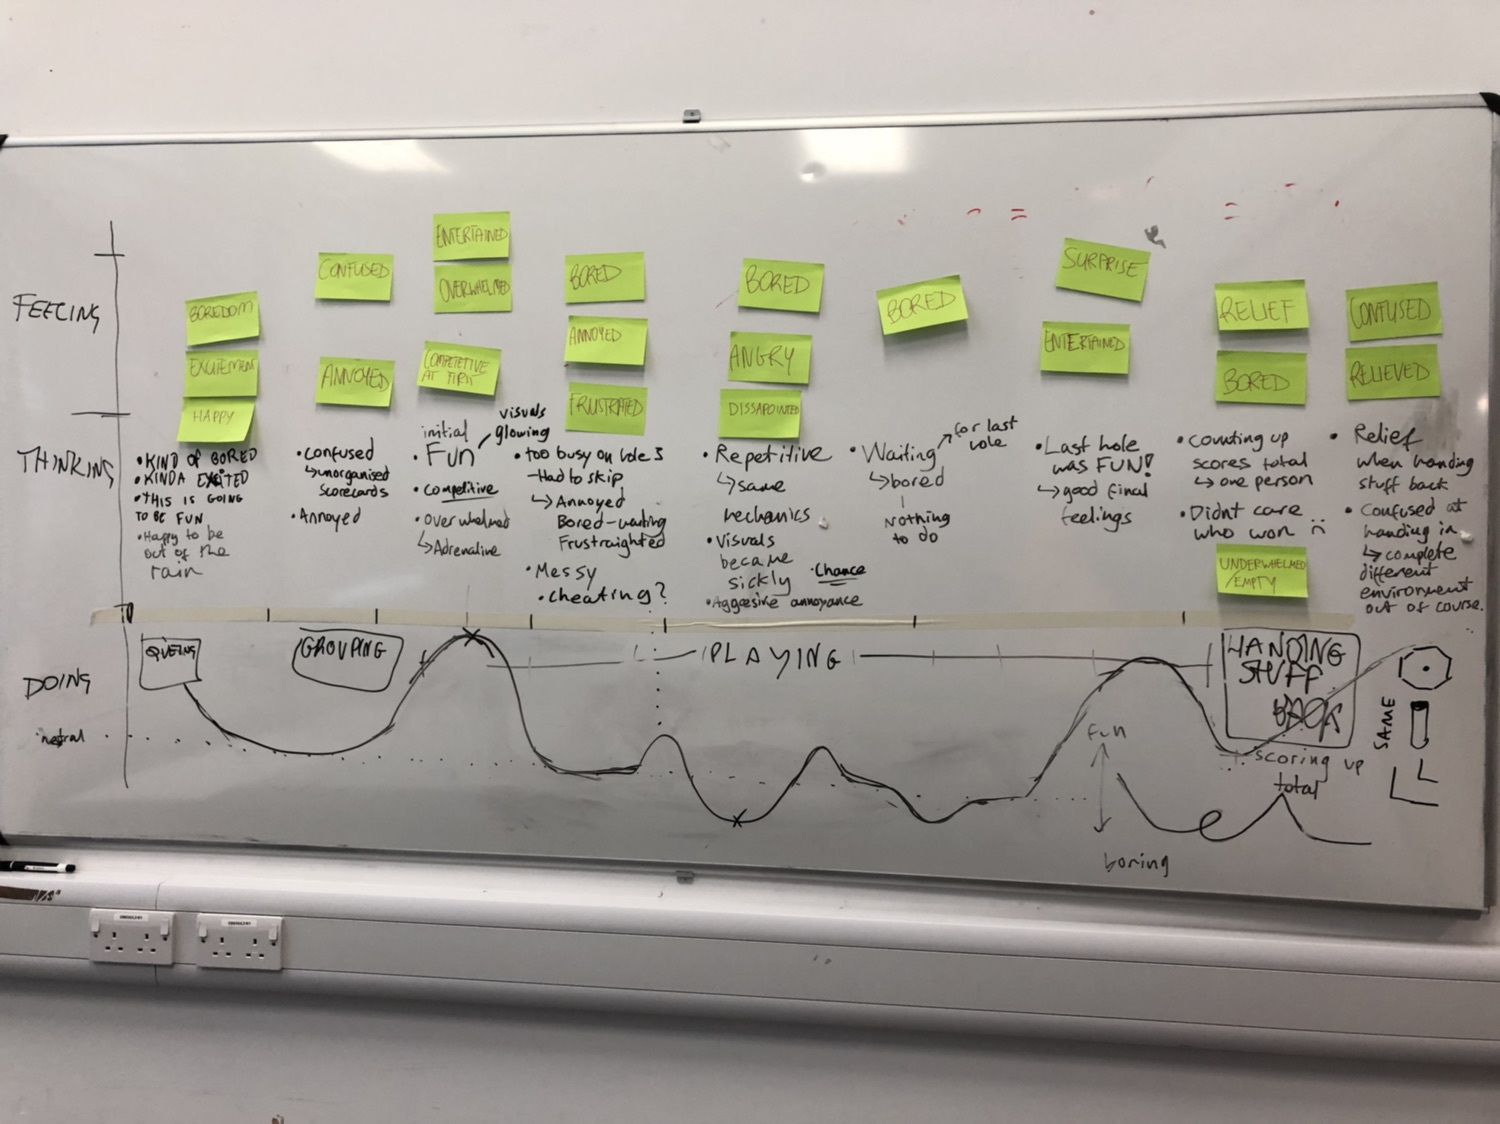 FEELING
BOREDOM
EXCITEMENT
HAPPY
CONFUSED
ANNOYED
ENTERTAINED
OVERWHELMED
COMPETETIVE
AT FIRST
BORED
ANNOYED
FRUSTRATED
BORED
ANGRY
DISSAPOINTED
BORED
SURPRISE
ENTERTAINED
RELIEF
BORED
CONFUSED
RELIEVED
THINKING
• KIND OF BORED
• KINDA EXCITED
• THIS IS GOING
TO BE FUN
• Happy to be
out of the
rain
• confused
↳ unorganised
scorecards
• Annoyed
initial
• Fun
visuals
glowing
• competitive
• overwhelmed
↳ Adrenaline
• too busy on hole 3
- Had to skip
↳ Annoyed
Bored - waiting
Frustraighted
• Messy
• cheating?
• Repetitive
↳ same
mechanics
• Visuals
became
sickly
• Chance
• Aggresive annoyance
• Waiting
for last
hole
↳ bored
Nothing
to do
• Last hole
was FUN!
↳ good final
feelings
• counting up
scores total
↳ one person
• Didnt care
who won
UNDERWHELMED
/EMPTY
• Relief
when handing
stuff back
• Confused at
handing in
↳ complete
different
environment
out of course.
DOING
QUEING
GROUPING
PLAYING
HANDING
STUFF
BACK
neutral
fun
boring
scoring up
total
SAME